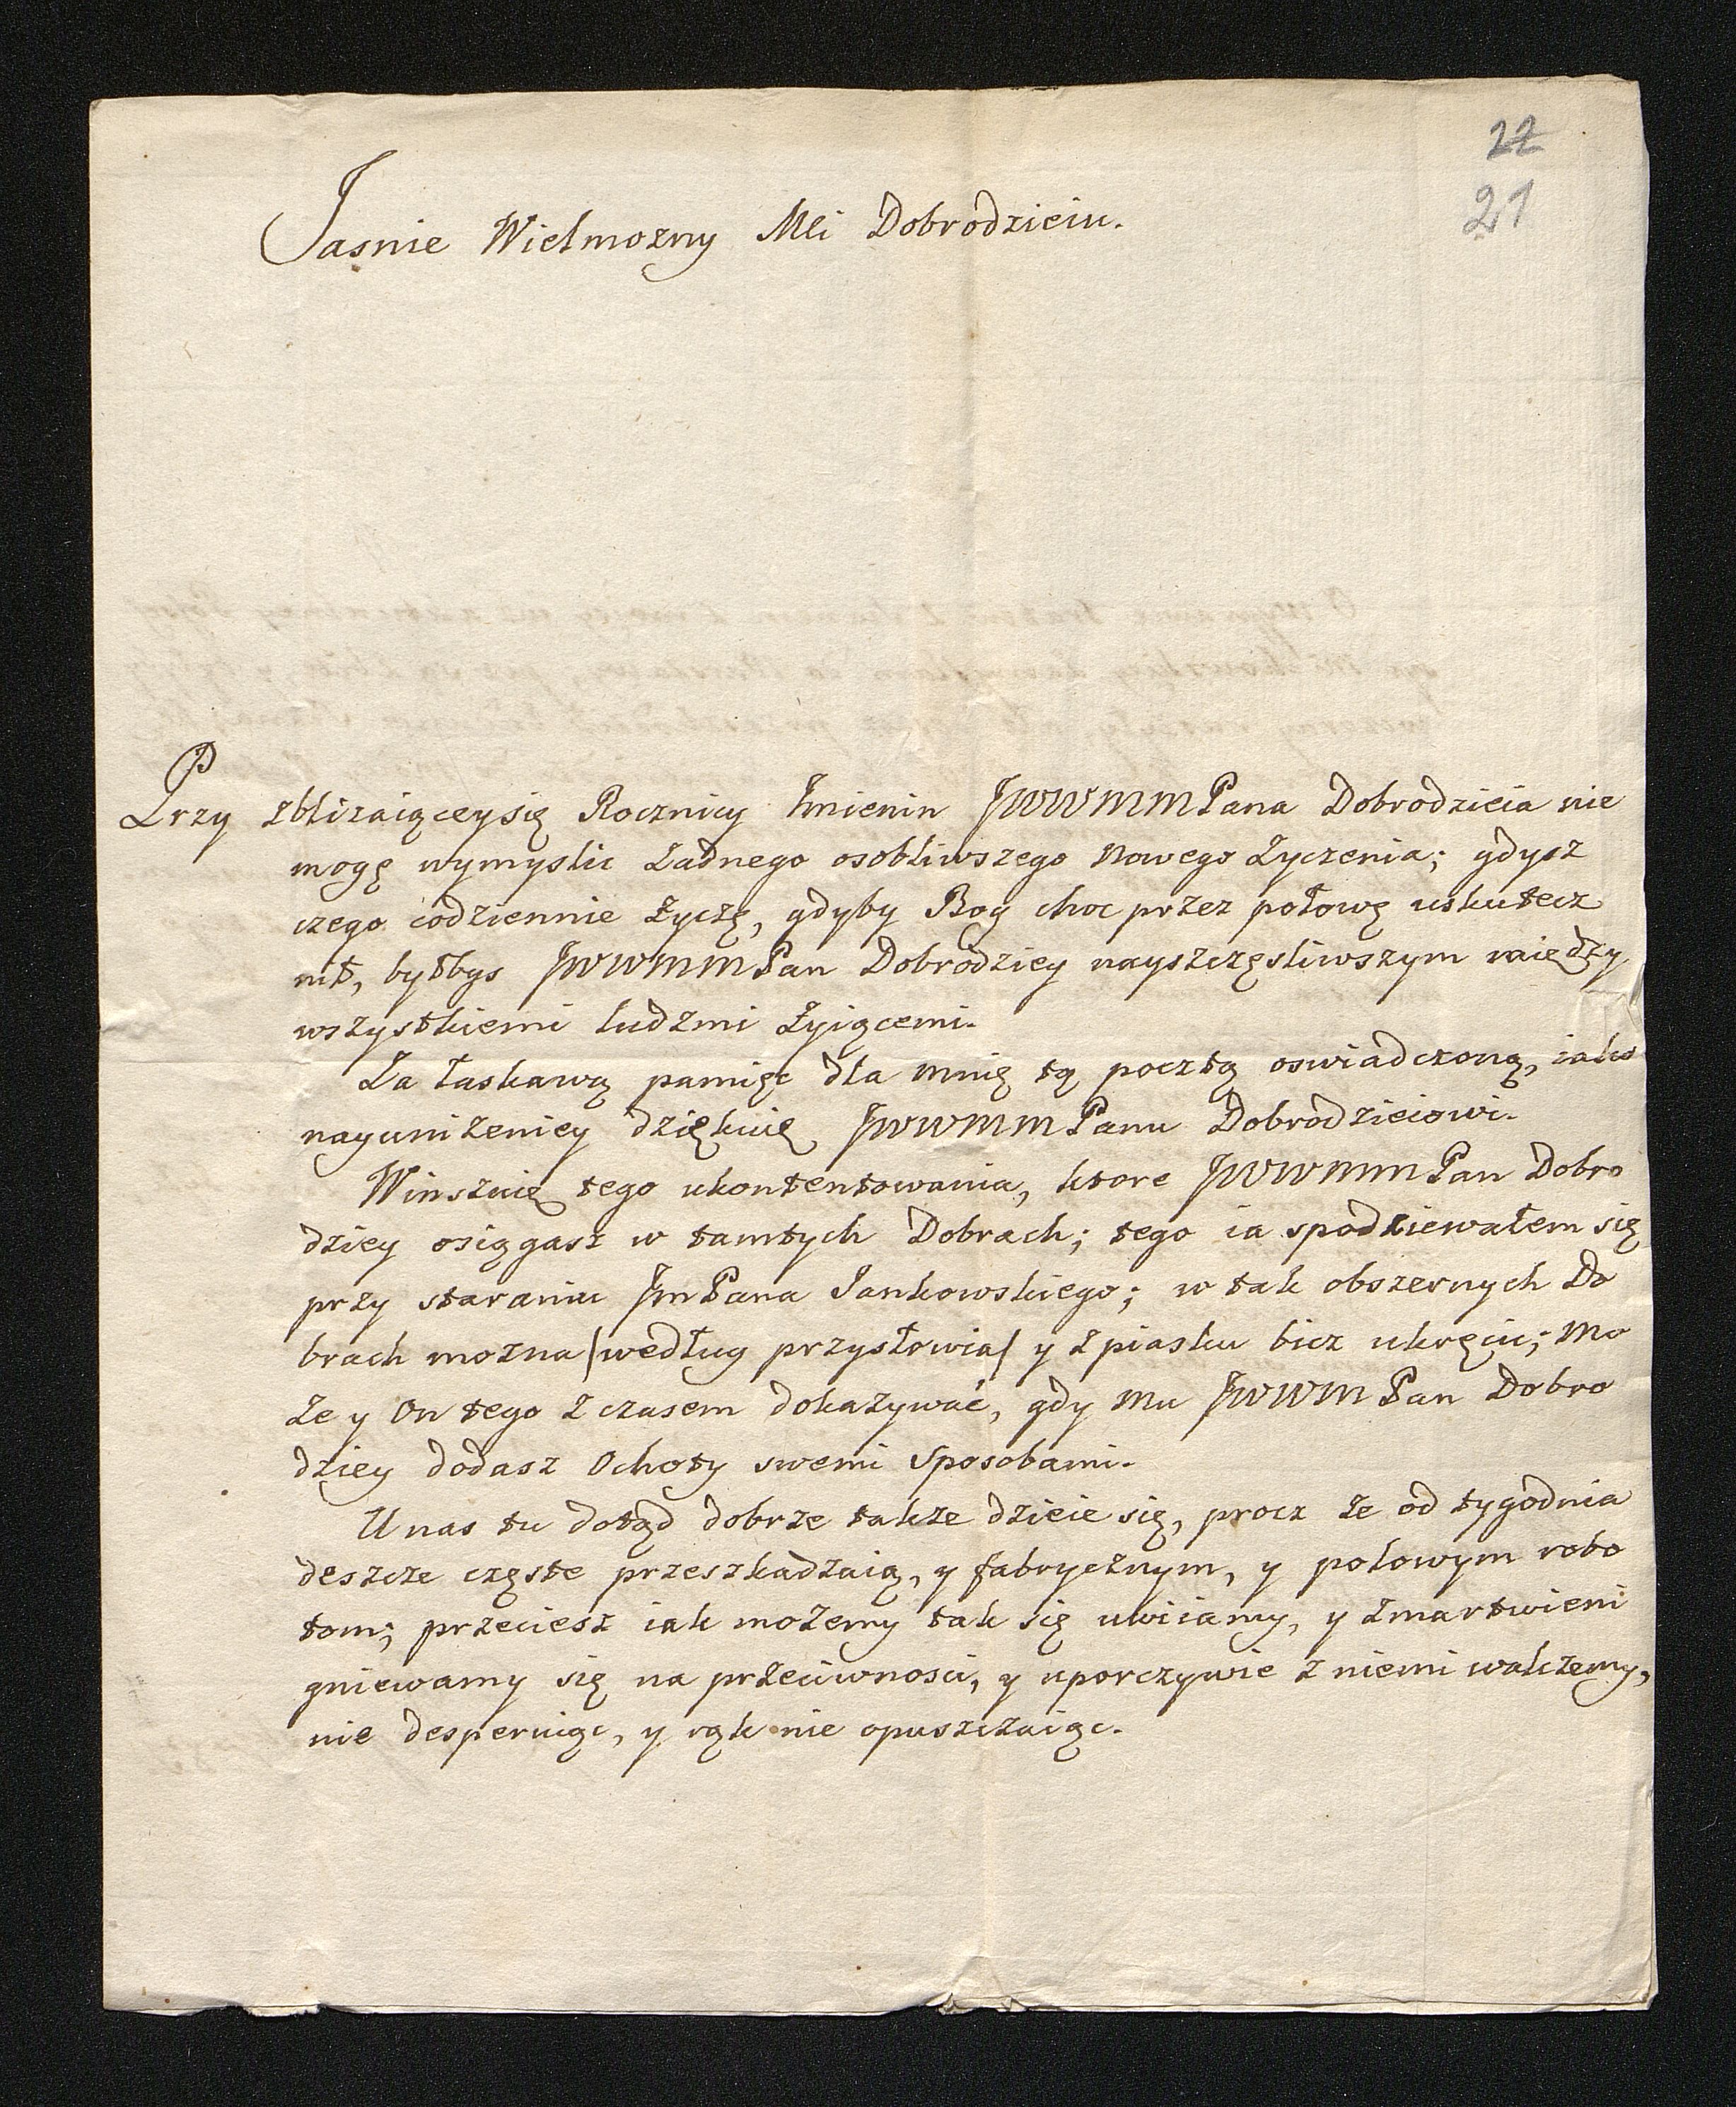 22
21
Jasnie Wielmozny Mci Dobrodzieiu.
Przy zbliżaiącey się Rocznicy Imienin JWWMMPana Dobrodzieia nie
mogę wymyslic Żadnego osobliwszego Nowego Życzenia; gdysz
czego codziennie życzę, gdyby Bog choc przez połowę uskutecz
nił, byłbys JWWMMPan Dobrodziey nayszczęsliwszym między
wszystkiemi ludzmi Żyiącemi.
Za łaskawą pamięc dla mnię tą pocztą oswiadczoną, iako
nayuniżeniey dziękuię JWWMMPanu Dobrodzieiowi.
Winszuię tego ukontentowania, ktore JWWMMPan Dobro
dziey osiągasz w tamtych Dobrach; tego ia spodziewałem się
przy staraniu JmPana Jankowskiego; w tak obszernych Do
brach mozna /według przysłowia/ y z piasku bicz ukręcic; Mo
że y On tego z czasem dokazywać, gdy Mu JWWMPan Dobro
dziey dodasz Ochoty swemi Sposobami.
U nas tu dotąd dobrze takze dzieie się, procz że od tygodnia
deszcze częste przeszkadzaią, y fabrycznym, y polowym robo
tom; przeciesz iak możemy tak się uwiiamy, y zmartwieni
gniewamy się na przeciwnosci, y uporczywie z niemi walczemy,
nie desperuiąc, y rąk nie opuszczaiąc.